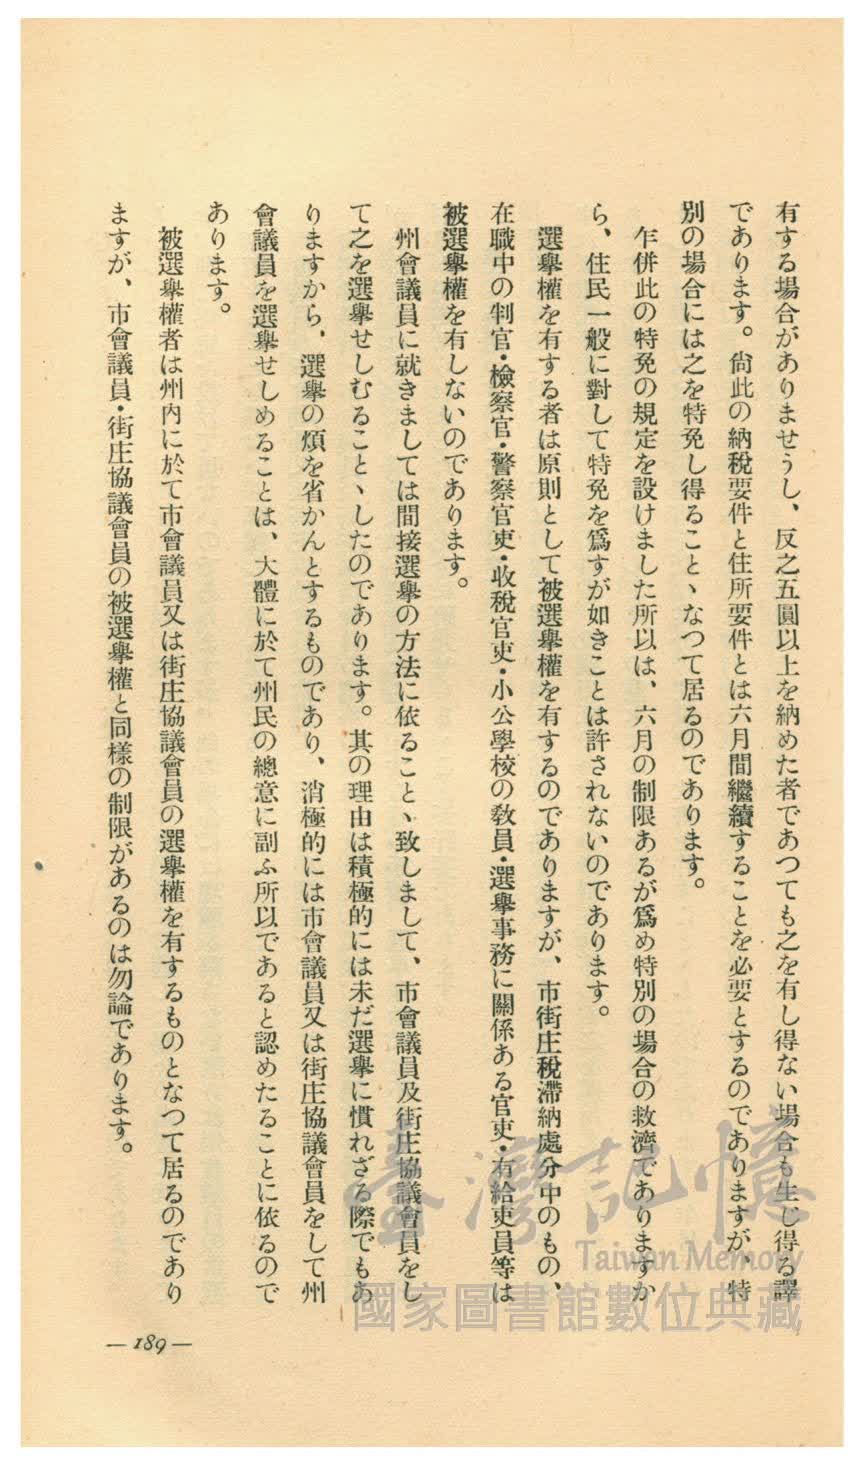 有する場合がありませうし、反之五圓以上を納めた者であつても之を有し得ない場合も生じ得る譯
であります。尙此の納稅要件と住所要件とは六月間繼續することを必要とするのでありますが、特
別の場合には之を特免し得ること丶なつて居るのであります。
乍併此の特免の規定を設けました所以は、六月の制限あるが爲め特別の場合の救濟でありますか
ら、住民一般に對して特免を爲すが如きことは許されないのであります。
選擧權を有する者は原則として被選擧權を有するのでありますが、市街庄稅滯納處分中のもの、
在職中の判官・檢察官・警察官吏・收稅官吏・小公學校の敎員・選擧事務に關係ある官吏・有給吏員等は
被選擧權を有しないのであります。
州會議員に就きましては間接選擧の方法に依ること丶致しまして、市會議員及街庄協議會員をし
て之を選擧せしむること丶したのであります。其の理由は積極的には未だ選擧に慣れざる際でもあ
りますから、選擧の煩を省かんとするものであり、消極的には市會議員又は街庄協議會員をして州
會議員を選擧せしめることは、大體に於て州民の總意に副ふ所以であると認めたることに依るので
あります。
被選擧權者は州內に於て市會議員又は街庄協議會員の選擧權を有するものとなつて居るのであり
ますが、市會議員・街庄協議會員の被選擧權と同樣の制限があるのは勿論であります。
— 189 —
臺灣記憶
Taiwan Memory
國家圖書館數位典藏